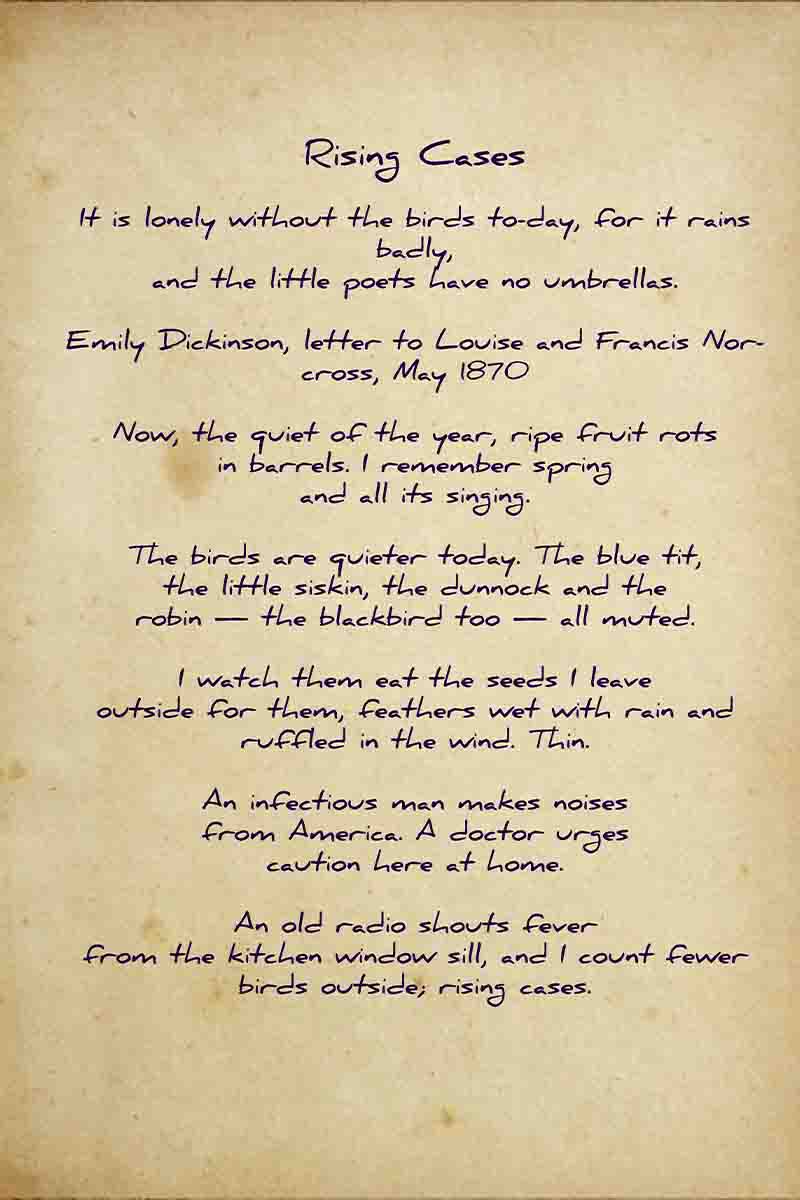 Rising Cases
It is lonely without the birds to-day, for it rains
badly,
and the little poets have no umbrellas.
Emily Dickinson, letter to Louise and Francis Nor-
cross, May 1870
Now, the quiet of the year, ripe fruit rots
in barrels. I remember spring
and all its singing.
The birds are quieter today. The blue tit,
the little siskin, the dunnock and the
robin — the blackbird too — all muted.
I watch them eat the seeds I leave
outside for them, feathers wet with rain and
ruffled in the wind. Thin.
An infectious man makes noises
from America. A doctor urges
caution here at home.
An old radio shouts fever
from the kitchen window sill, and I count fewer
birds outside; rising cases.